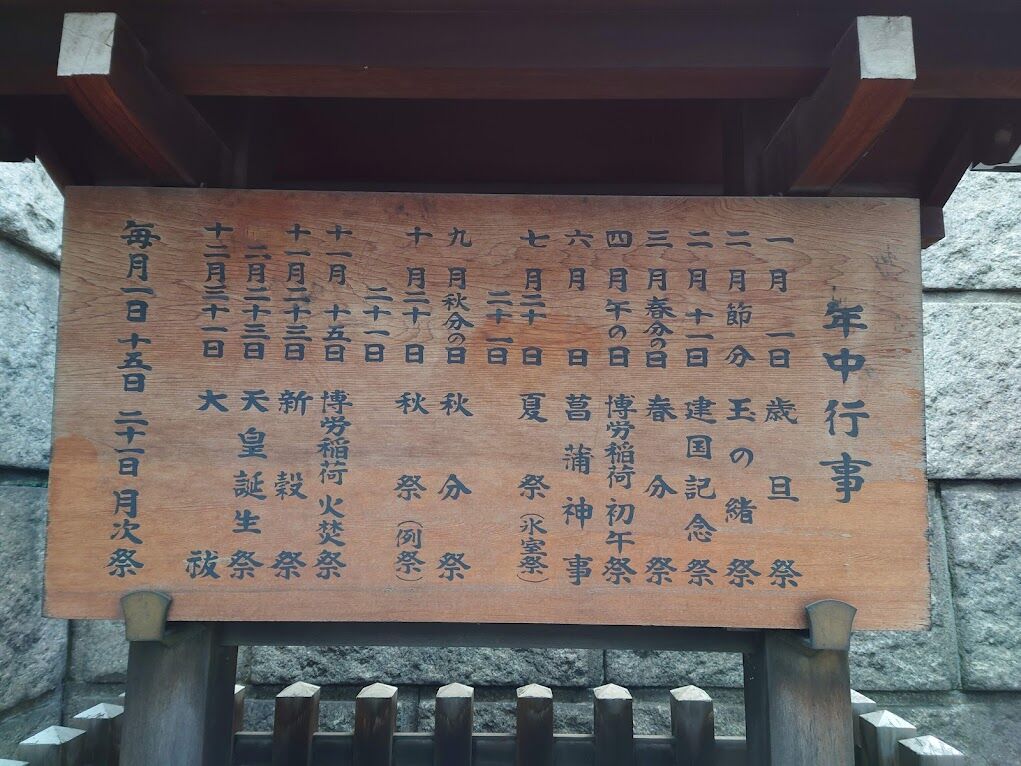 年中行事
一月一日 歳旦祭
二月節分 玉の緒祭
二月十一日 建国記念祭
三月春分の日 春分祭
四月午の日 博労稲荷初午祭
六月 日 菖蒲神事
七月二十日
二十一日 夏祭(氷室祭)
九月秋分の日 秋分祭
十月二十日
二十一日 秋祭(例祭)
十一月十五日 博労稲荷火焚祭
十一月二十三日 新穀祭
二月二十三日 天皇誕生祭
十二月三十一日 大祓
毎月一日 十五日 二十一日 月次祭